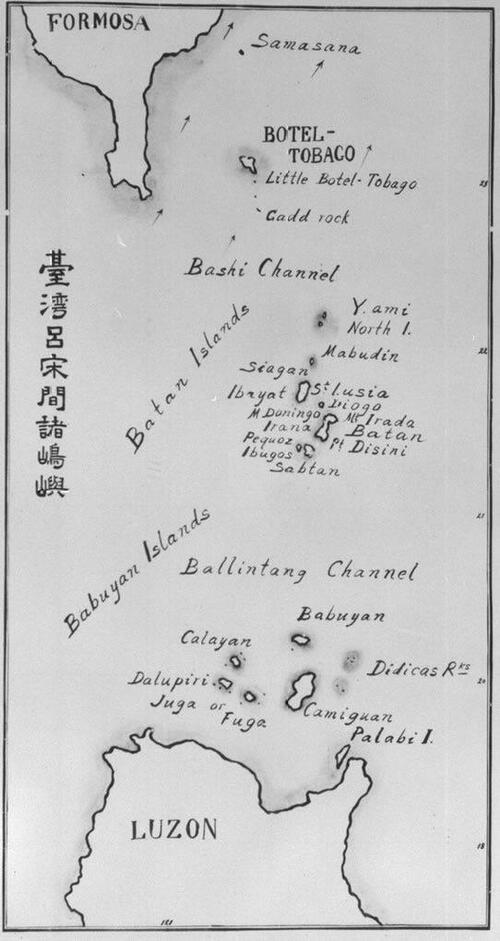 FORMOSA
Samasana
BOTEL-
TOBACO
Little Botel-Tobago
Gadd rock
23
Bashi Channel
臺湾呂宋間諸嶋嶼
Batan Islands
Y.ami
North I.
Mabudin
22
Siagan
Ibayat
St Lusia
Diogo
M. Doningo
Mt Irada
Irana
Batan
Pequoz
Pt Disini
Ibugos
Sabtan
21
Babuyan Islands
Ballintang Channel
Babuyan
Calayan
Didicas Rks
Dalupiri
20
Juga or
Fuga
Camiguan
Palabi I.
LUZON
18
121